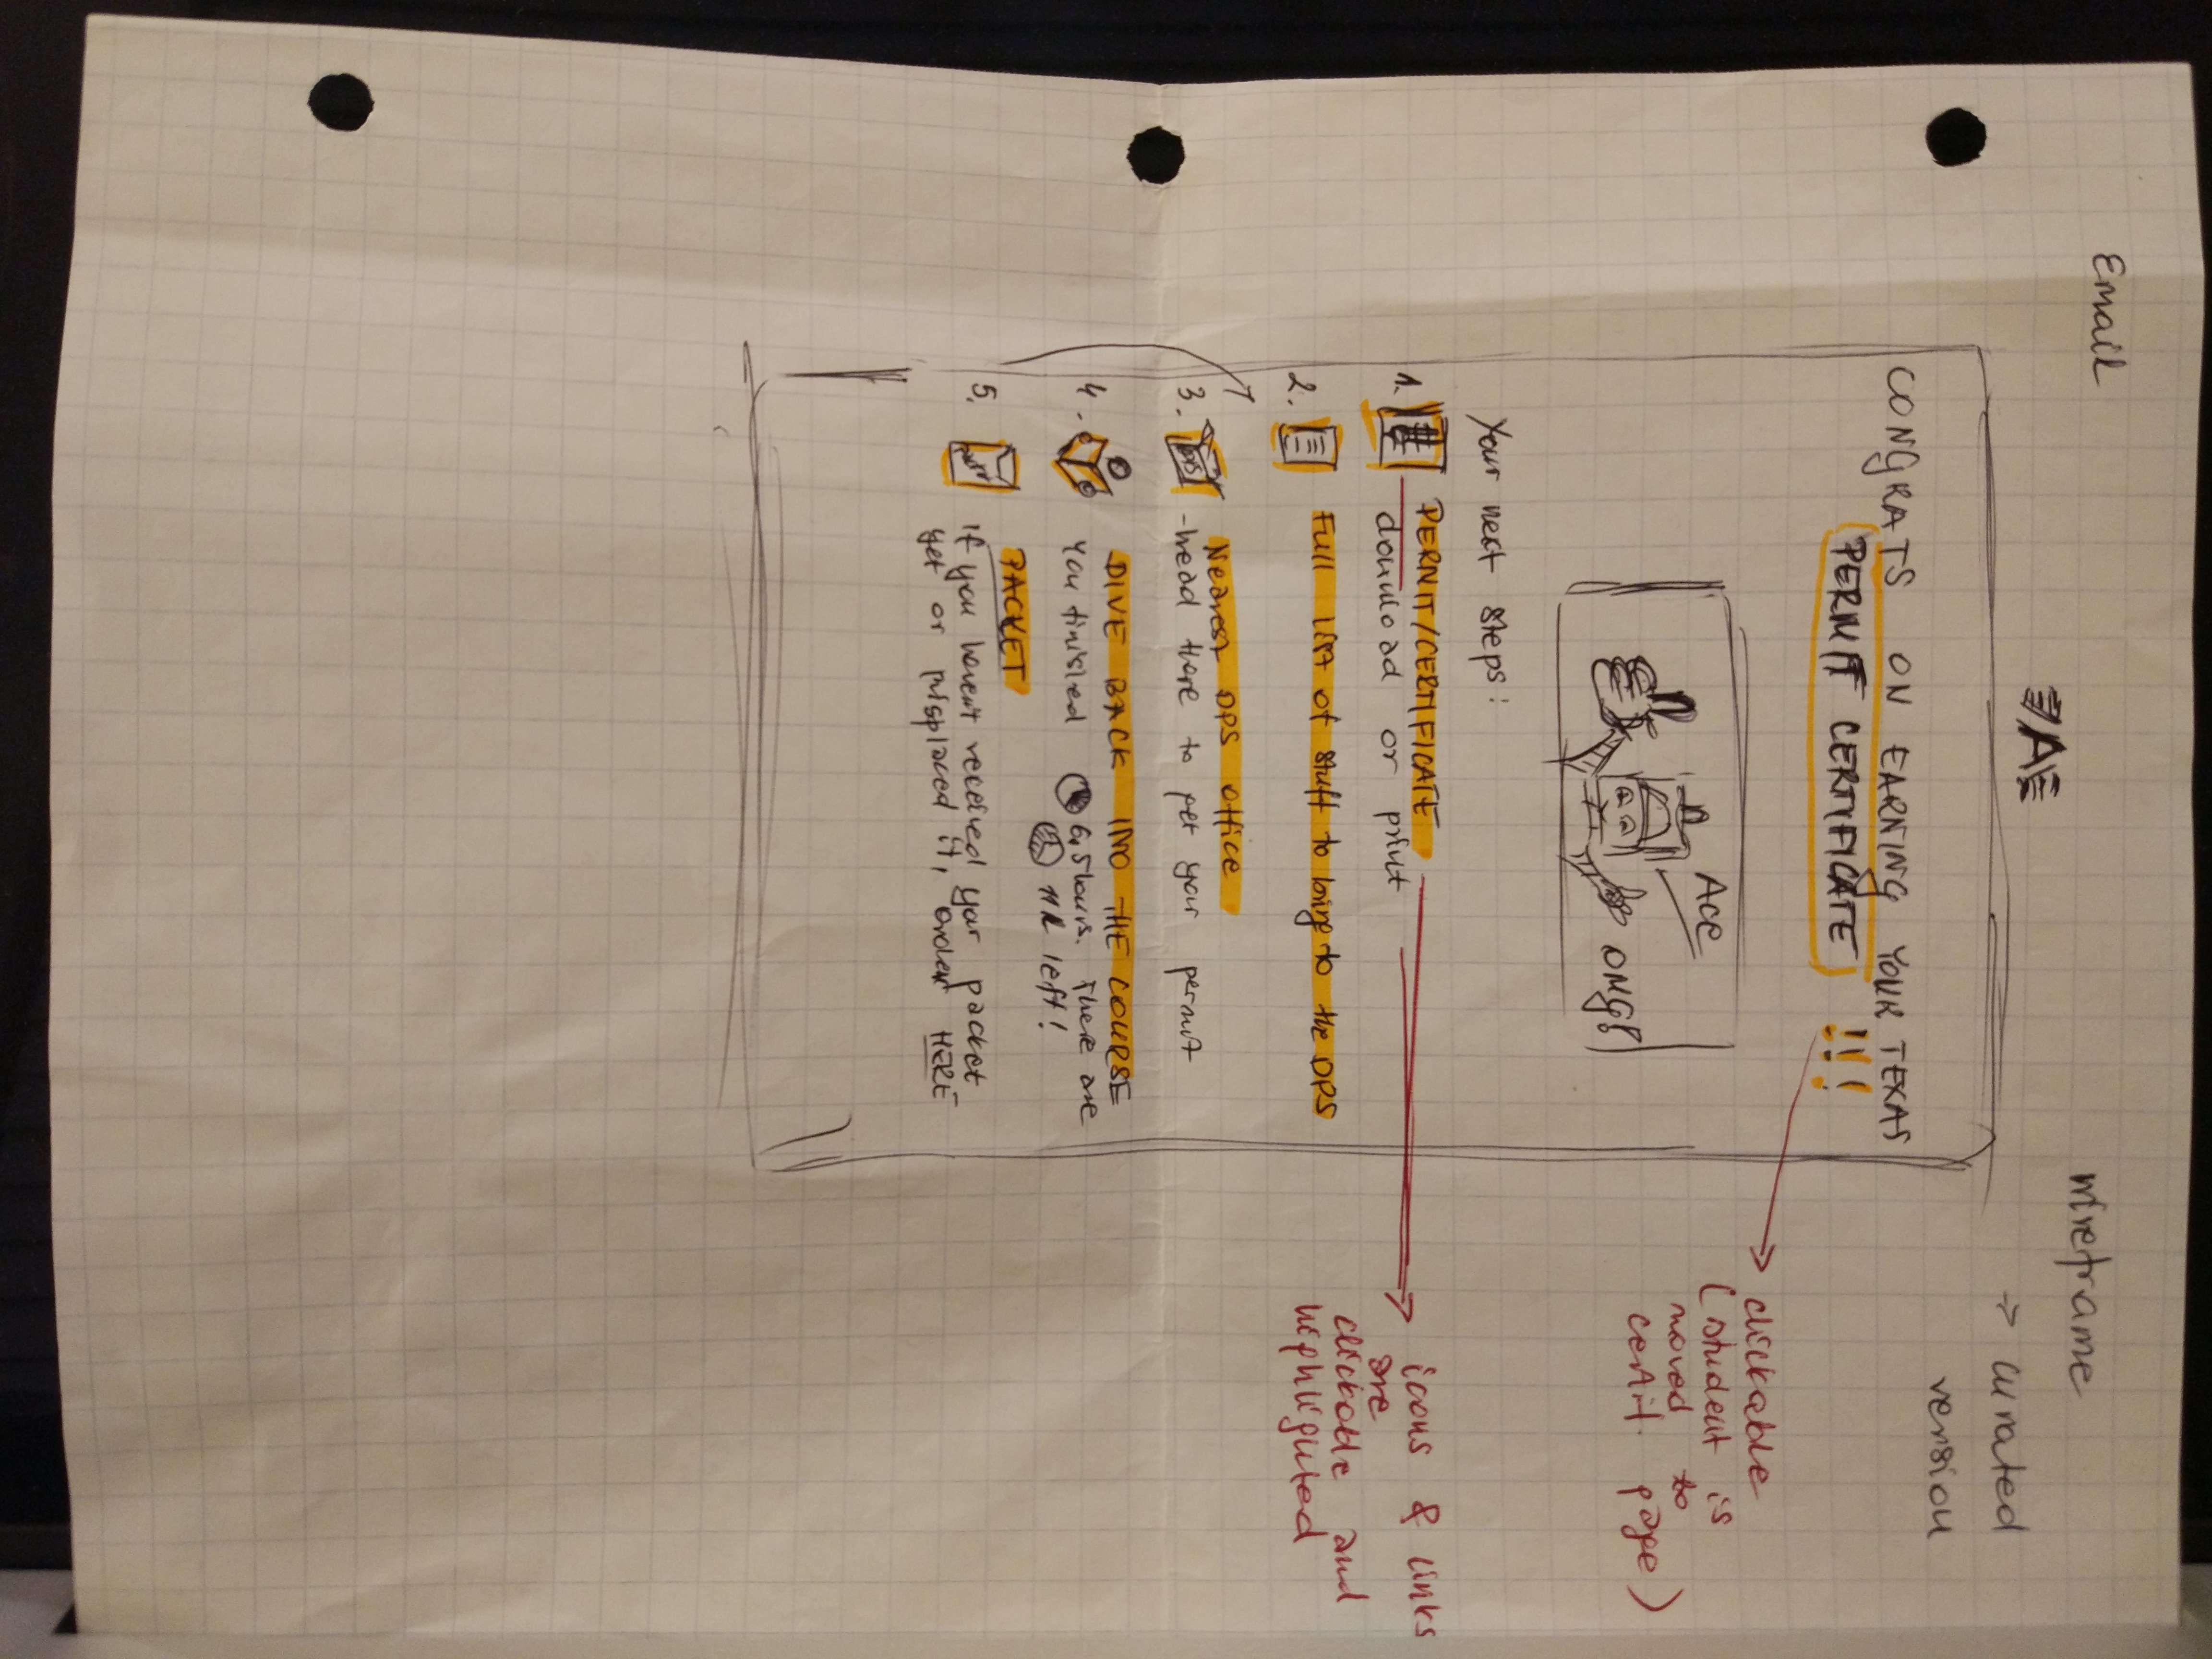 Email
wireframe
→ curated
version
A
CONGRATS ON EARNING YOUR TEXAS
PERMIT CERTIFICATE !!!
clickable
(student is
moved to
certif. page)
Ace
OMG!
Your next steps:
1. PERMIT/CERTIFICATE
download or print
icons & links
are
clickable and
highlighted
2. Full list of stuff to bring to the DPS
3. DPS Nearest DPS office
-head there to get your permit
4. DIVE BACK INTO THE COURSE
You finished 6.5 hours. There are
11R left!
5. PACKET
If you haven't received your packet
yet or misplaced it, order HERE